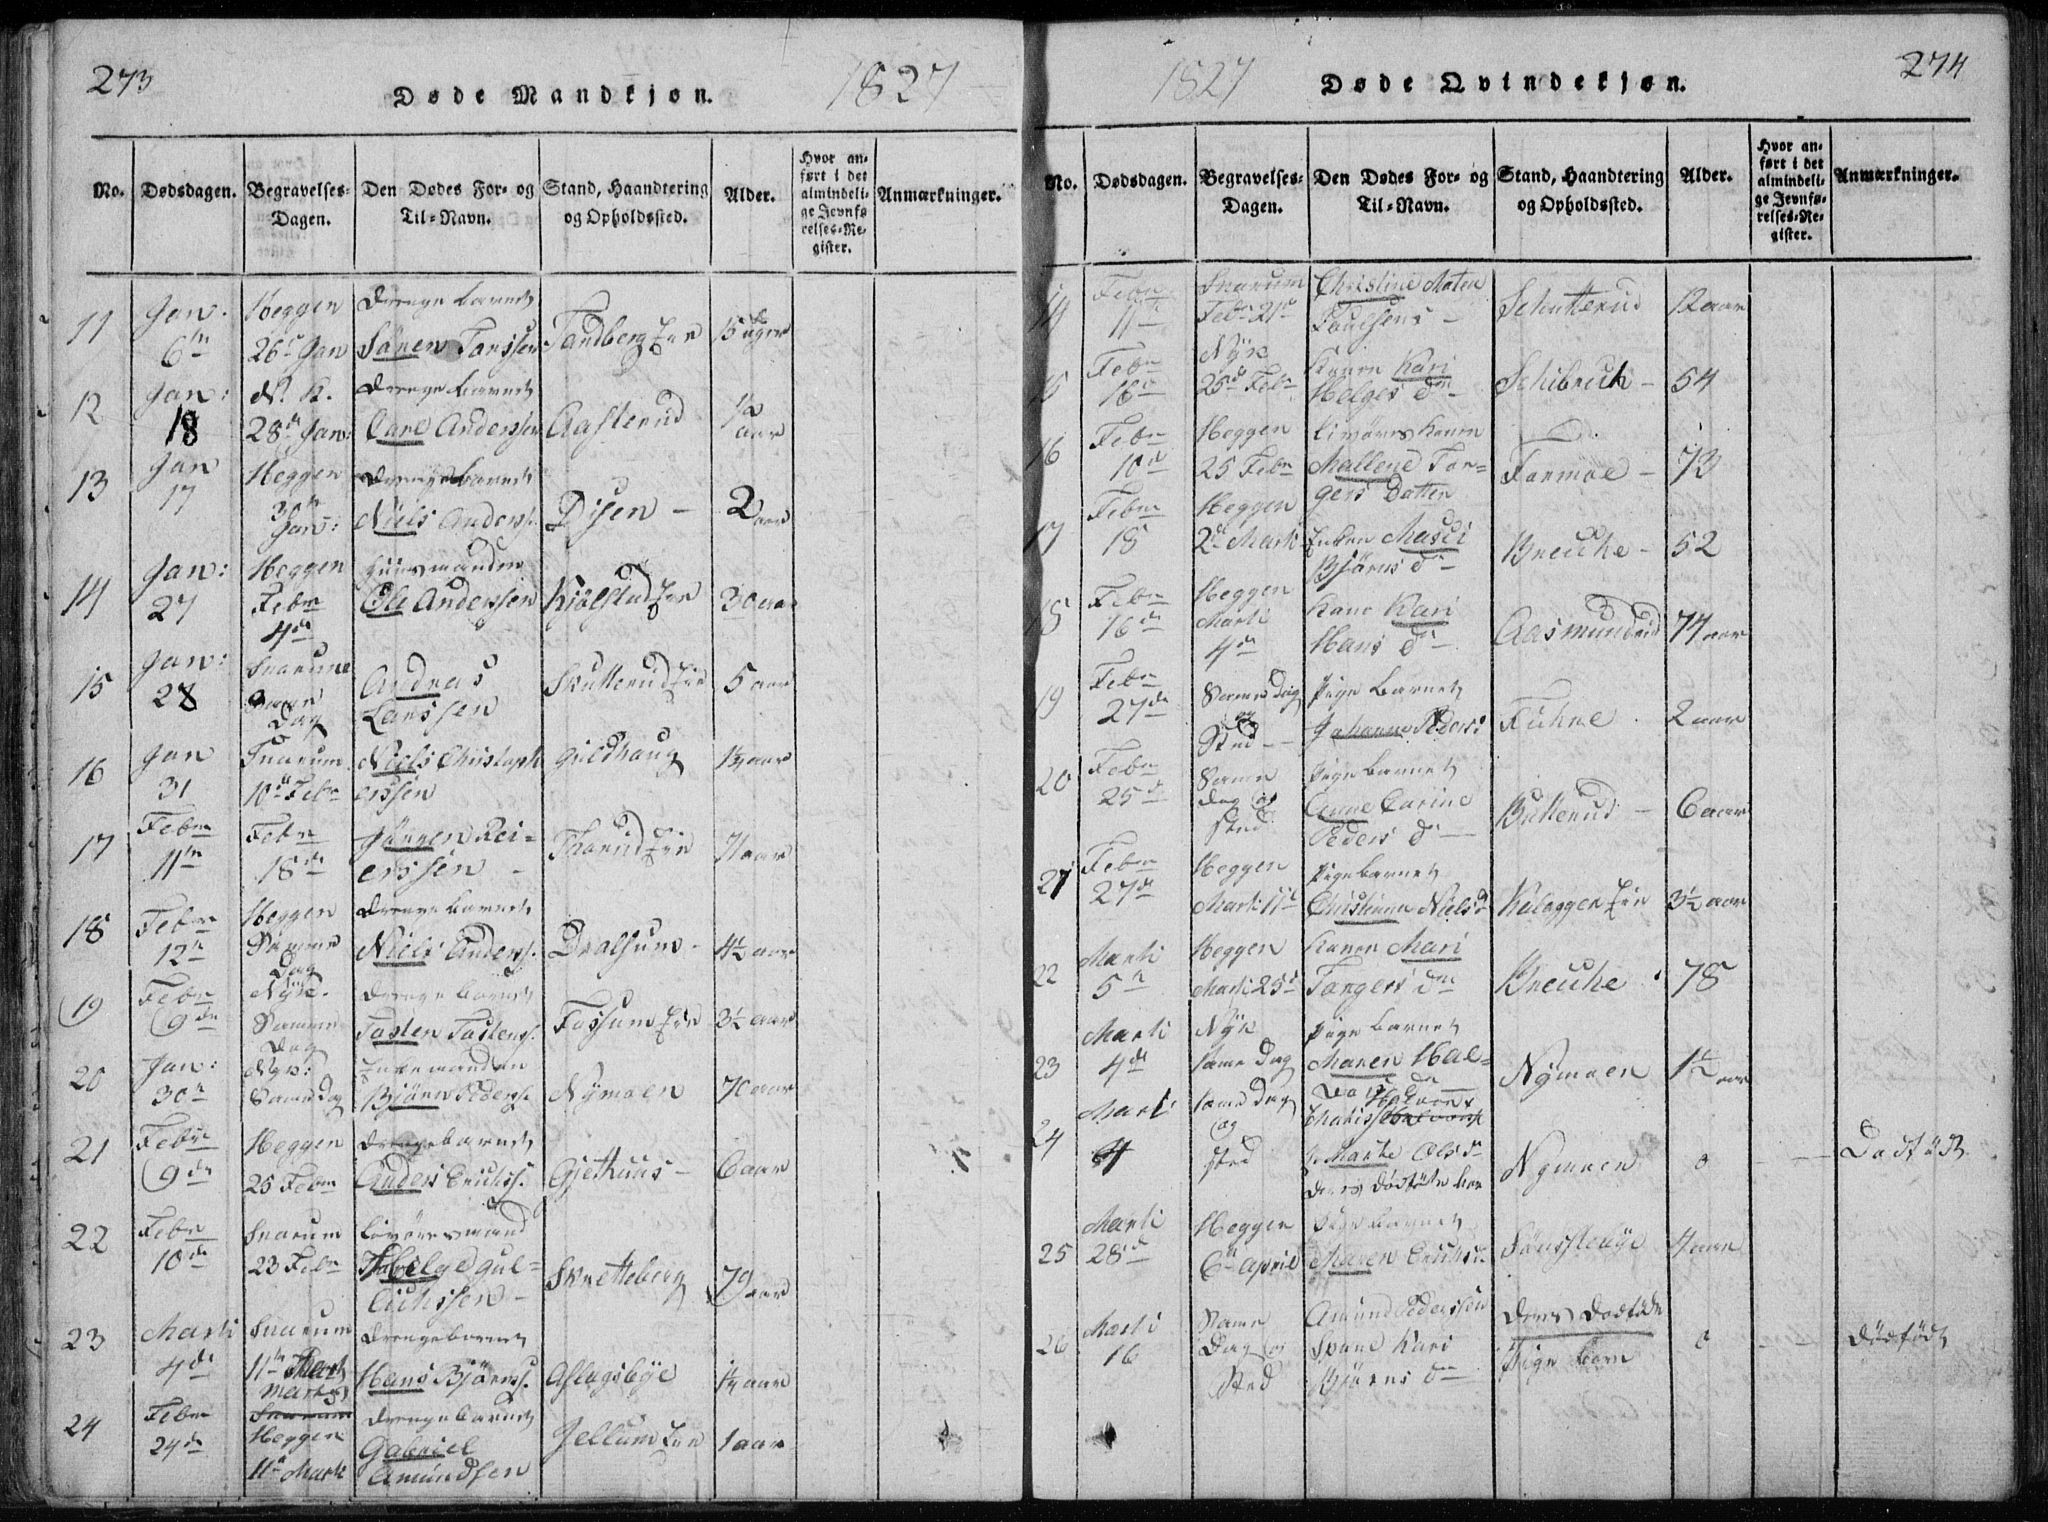 273
Døde Mandkjøn.
1827
No.
Dødsdagen.
Begravelses-
Dagen.
Den Dødes For- og
Til-Navn.
Stand, Haandtering
og Opholdssted.
Alder.
Hvor an-
ført i det
almindeli-
ge Jevnfø
relses-Re-
gister.
Anmærkninger.
11
Jan.
6te
Heggen
26de Jan
Drengebarnet
Søren
Tandberg Eie
15 uger
12
Jan:
18
N. K.
28de Jan:
Drengebarnet
Carl Anderssen
Aasterud
1/2
aar
13
Jan
17
Heggen
30te
Jan:
Drengebarnet
Niels Anderss.
Disen -
2 aar
14
Jan:
27
Heggen
Febr
4de
Huusmanden
Ole Anderssen
Kjølstad Eie
30 aar
15
Jan:
28
Snarum
Samme
Dag
Andreas
Larssen
Skutterud Eie
5 aar
16
Jan
31
Snarum
10de Febr
Niels Christoph
erssen
Guldhaug
17
Febr
11te
Febr
18de
Jørgen Rei-
erssen -
Thorud Eie
71 aar
18
Febr
12te
Heggen
Samme
Dag
Drengebarnet
Niels Anderss.
Dralsum -
4 1/2 aar
19
Febr
9de
Nyk.
Samme
Dag
Drengebarnet
Tosten Tostens.
Fossum Eie
3 1/2 aar
20
Jan:
30te
Nyk:
Same Dag
Enkemanden
Bjørn Peders.
Nymoen
70 aar
21
Febr
9de
Heggen
25 Febr
Drengebarnet
Anders Erichss.
Gjethuus -
6 aar
22
Febr
10de
Snarum
23 Febr
Livøresmand
Helge Gul-
Erichssen -
Skretteberg
79 aar
23
Marti
4de
Snarum
11te
Marty
Drengebarnet
Hans Bjørnss.
Aslagsbye
24
Febr
24de
Snarum
Heggen
11te Marti
Drengebarnet
Gabriel
Amundsen
Jellum Eie
1 aar
274
1827
Døde Qvindekjøn.
No.
Dødsdagen.
Begravelses-
Dagen.
Den Dødes For- og
Til-Navn.
Stand, Haandtering
og Opholdssted.
Alder.
Hvor an-
ført i det
almindeli-
ge Jevnfø-
relses-Re-
gister.
Anmærkninger.
14
Febr
11te
Snarum
Febr 21de
Christine Maten
Poulsens -
Schutterud
12 aar
15
Febr
16de
Nyk
25de Febr
Konen Kari
Helges D -
Schibreck -
54
16
Febr
10de
Heggen
25 Febr
Livøres Konen
Mallene Tor-
gers Datter
Formoe -
73
17
Febr
18
Heggen
2de Marti
Enken Masei
Bjørns D -
Breche -
52
18
Febr
16de
Heggen
Marti
4de
Kone Kari
Hans D -
Aasmundrud
74 aar
19
Febr
27de
Samme Dag
og
Sted -
Pige Barnet
Johanne Peders
2 aar
20
Febr
25de
Samme
Dag og
Sted
Pige Barnet
Anne Carine
Peders D -
Butterud -
6 aar
21
Febr
27de
Heggen
Marti 11te
Pigebarnet
Christianna Niels D
Kalaggen Eie
3 1/2 aar
22
Marti
5te
Heggen
Marti 25de
Konen Mari
Torgers D
Breche
78
23
Marti
4de
Nyk
same Dag
Pige Barnet
Maren Hal-
Nymoen
1 1/2
aar
24
Marti
4
same Dag
og
sted
Marte Ols D
Deres dødfødte
Nymoen
0
Dødfødt
25
Marti
28de
Heggen
6te April
Pigebarnet
Maren Erichs D
Sønstebye
4 aar
26
Marti
16
Same
Dag og
Sted
Amund Pederssen
Spone Kari
Bjørns D
Deres Dødføde
Pige Barn
0
dødfødt